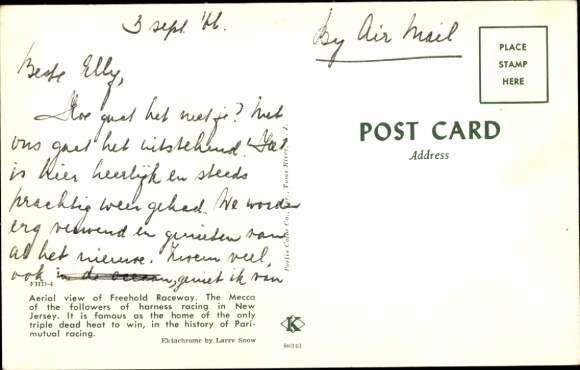 3 sept. '66.
By Air Mail
Beste Elly,
Hoe gaat het met je? Met
ons gaat het uitstekend! Het
is hier heerlijk en steeds
prachtig weer gehad. We worden
erg verwend en genieten van
al het nieuwe. Zwem veel,
ook in de oceaan, geniet ik van
PLACE
STAMP
HERE
POST CARD
Address
FHD-4
Aerial view of Freehold Raceway. The Mecca
of the followers of harness racing in New
Jersey. It is famous as the home of the only
triple dead heat to win, in the history of Pari-
mutual racing.
Ektachrome by Larry Snow
Toms River, N. J.
K
80343